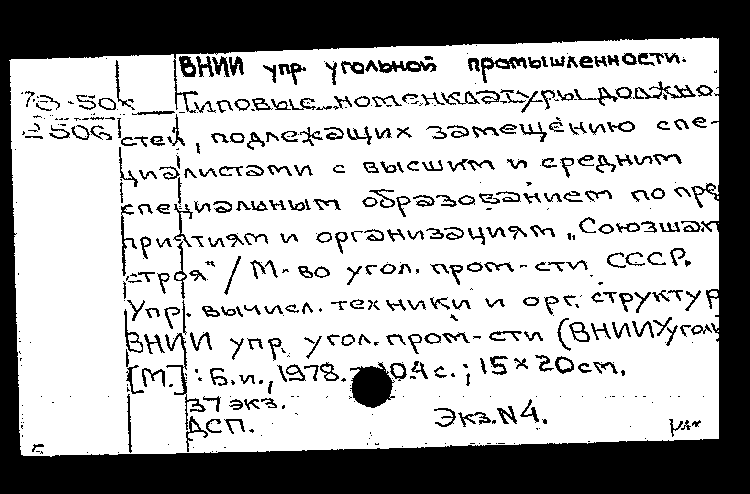 ВНИИ упр. угольной промышленности.
78-50к Типовые номенклатуры должно-
2506 стей, подлежащих замещению спе-
циалистами с высшим и средним
специальным образованием по пред
приятиям и организациям „Союзшахт
строя" / М-во угол. пром-сти СССР.
Упр. вычисл. техники и орг. структур
ВНИИ упр угол. пром-сти (ВНИИУголь
[М.] : Б.и., 1978. - 104 с.; 15 × 20 см.
37 экз.
ДСП. Экз. N 4.